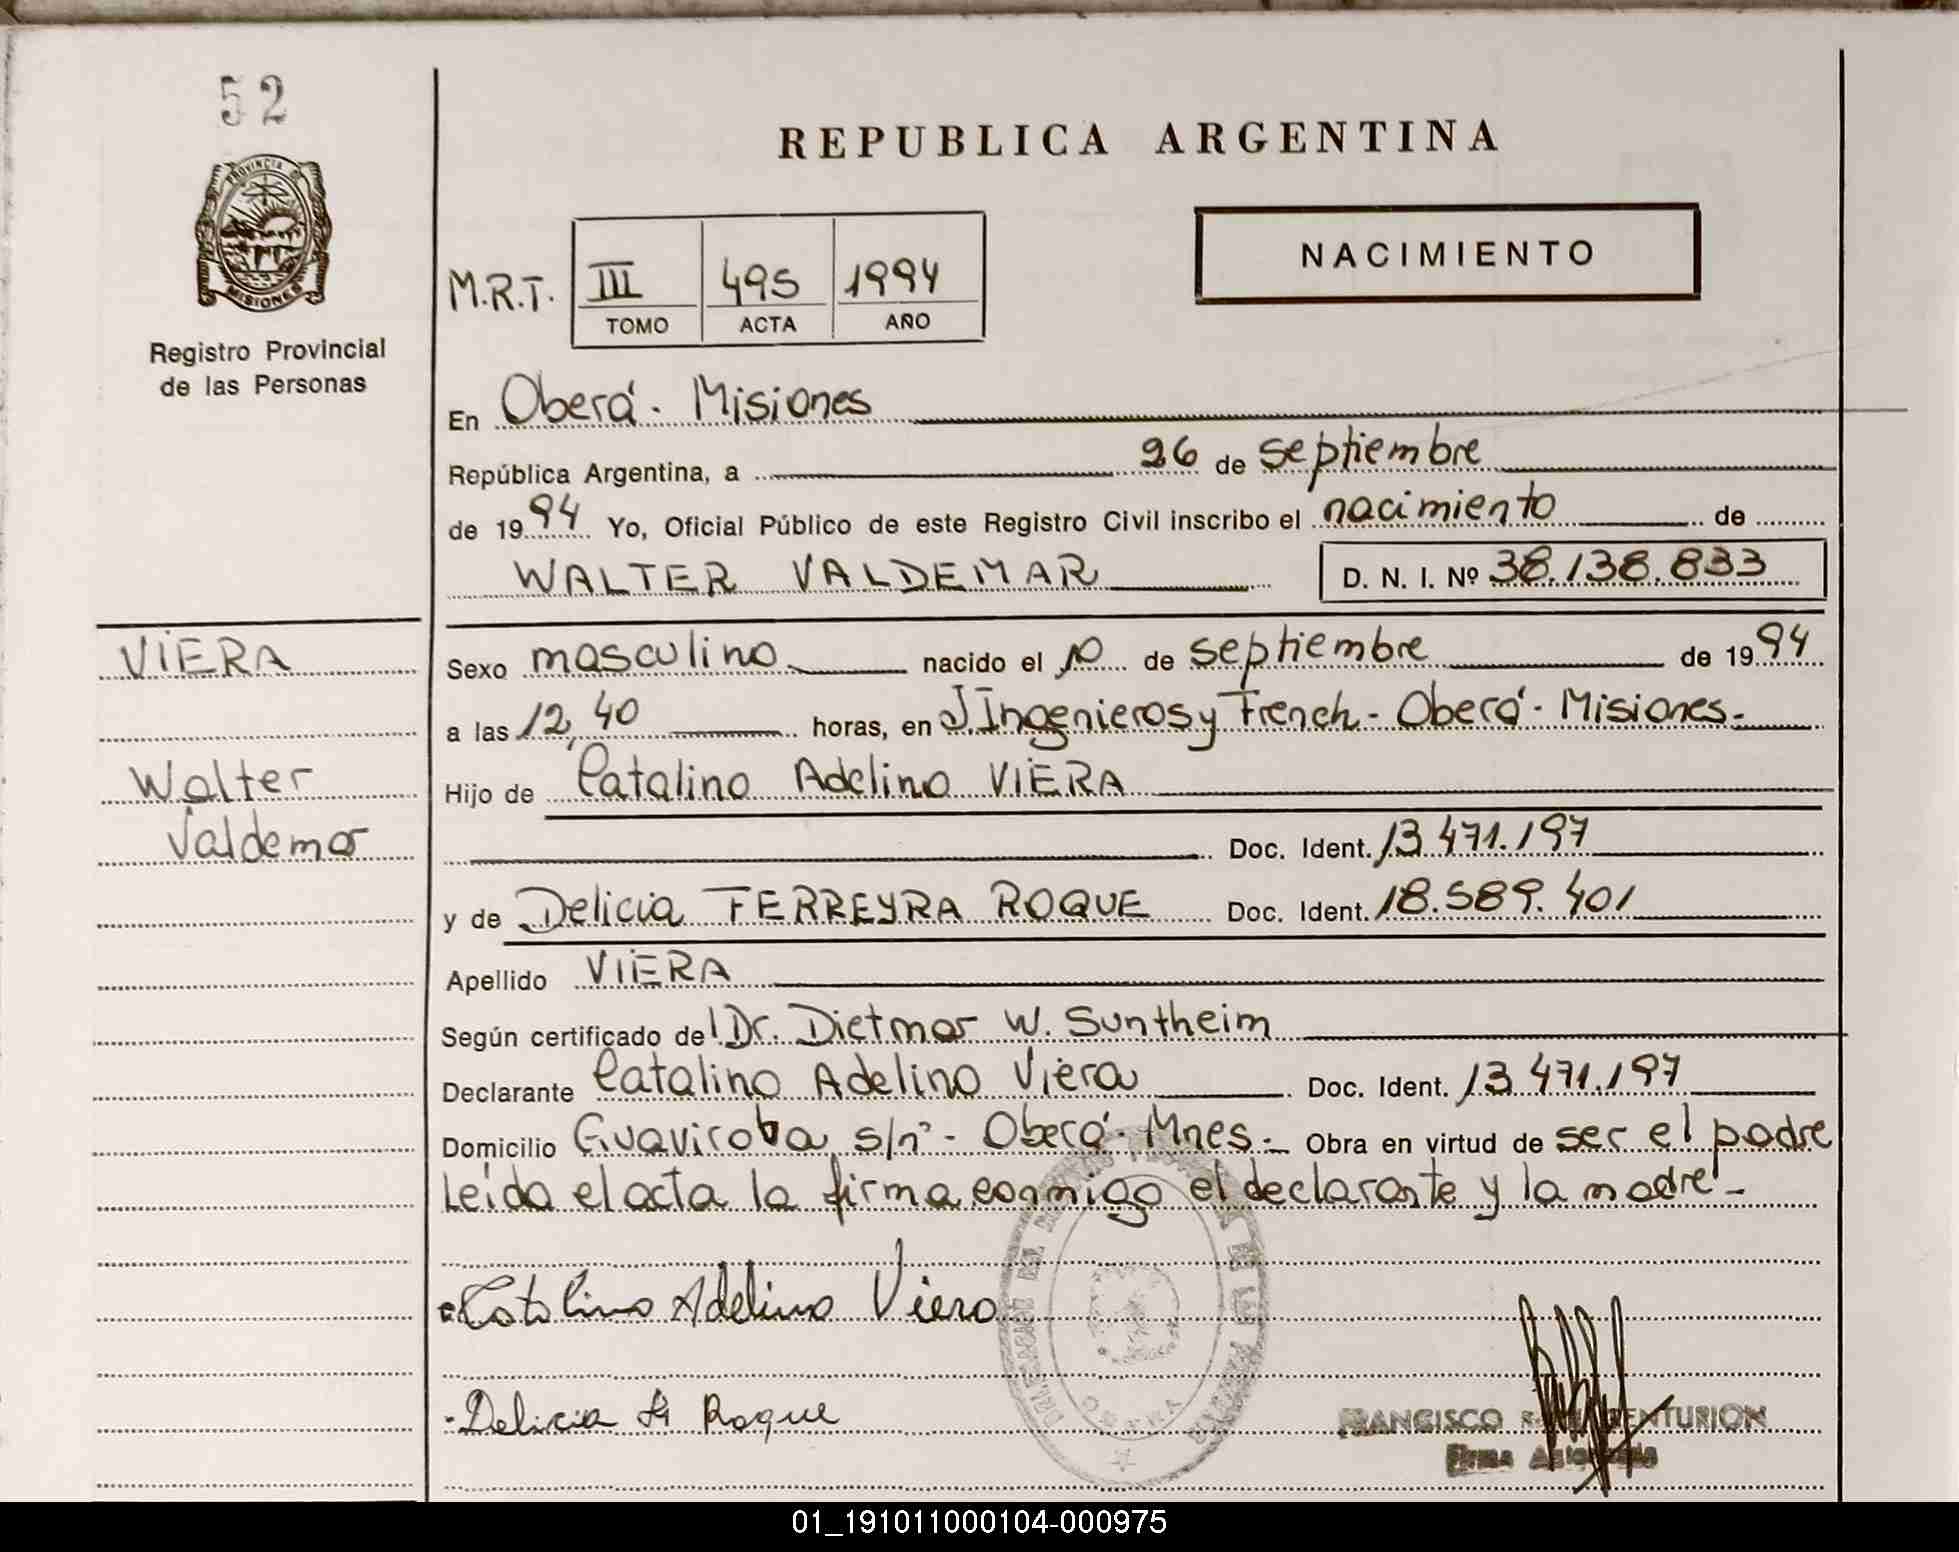 52
PROVINCIA DE
MISIONES
Registro Provincial
de las Personas
REPUBLICA ARGENTINA
NACIMIENTO
M.R.T. III 495 1994
TOMO ACTA AÑO
En Oberá - Misiones
República Argentina, a 26 de septiembre
de 1994 Yo, Oficial Público de este Registro Civil inscribo el nacimiento de
WALTER VALDEMAR D. N. I. Nº 38.138.833
VIERA
Walter
Valdemar
Sexo masculino nacido el 10 de septiembre de 1994
a las 12,40 horas, en J. Ingenieros y French - Oberá - Misiones-
Hijo de Catalino Adelino VIERA
Doc. Ident. 13.471.197
y de Delicia FERREYRA ROQUE Doc. Ident. 18.589.401
Apellido VIERA
Según certificado del Dr. Dietmar W. Suntheim
Declarante Catalino Adelino Viera Doc. Ident. 13.471.197
Domicilio Guaviroba s/nº - Oberá - Mnes - Obra en virtud de ser el padre
Leída el acta la firma conmigo el declarante y la madre -
Catalino Adelino Viera
Delicia Roque
OBERA
FRANCISCO CENTURION
Firma
01_191011000104-000975